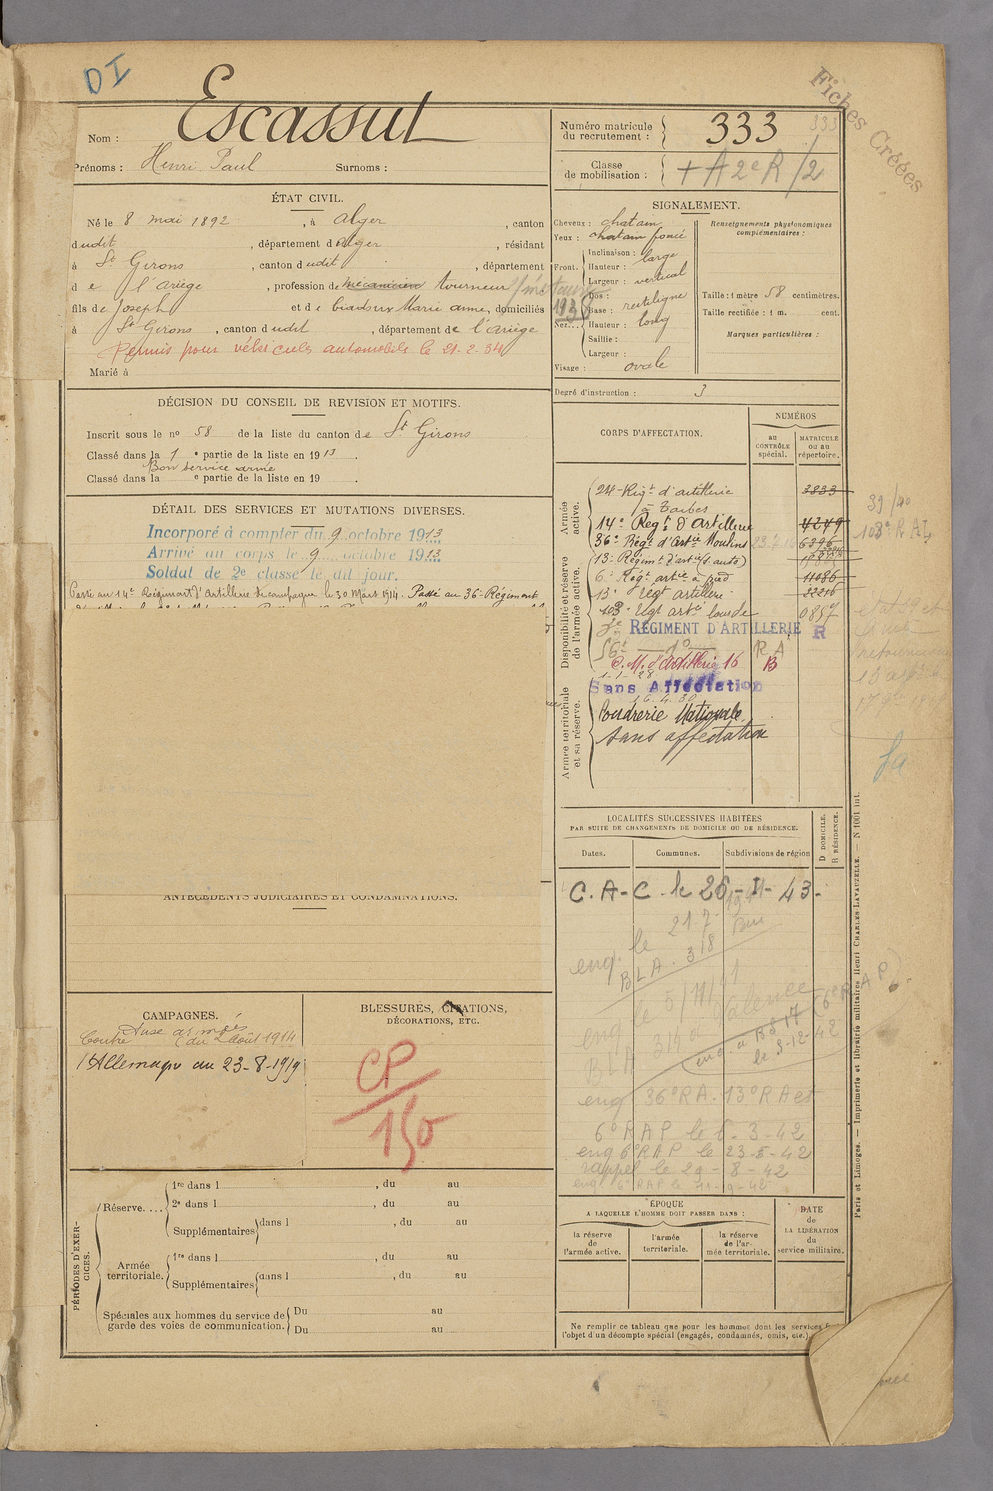 DI
Fiches Créées
Nom : Escassut
Prénoms : Henri Paul Surnoms :
Numéro matricule du recrutement : 333
333
Classe de mobilisation : + A 2e R /2
ÉTAT CIVIL.
Né le 8 mai 1892, à Alger, canton
dudit, département d'Alger, résidant
à St Girons, canton dudit, département
de l'Ariège, profession de mécanicien tourneur
fils de Joseph et de Marie anne, domiciliés
à St Girons, canton dudit, département de l'Ariège
Permis pour véhicules automobile le 21-2-34
Marié à
SIGNALEMENT.
Cheveux : chatain
Yeux : chatain foncé
Front. Inclinaison : large
Hauteur :
Largeur : vertical
Nez... Dos :
Base : rectiligne
Hauteur : long
Saillie :
Largeur :
Visage : ovale
1938
Renseignements physionomiques complémentaires :
Taille : 1 mètre 58 centimètres.
Taille rectifiée : 1 m. cent.
Marques particulières :
Degré d'instruction : 3
DÉCISION DU CONSEIL DE REVISION ET MOTIFS.
Inscrit sous le no 58 de la liste du canton de St Girons
Classé dans la 1 e partie de la liste en 1913.
Bon service armé
Classé dans la e partie de la liste en 19 .
DÉTAIL DES SERVICES ET MUTATIONS DIVERSES.
Incorporé à compter du 9 octobre 1913
Arrivé au corps le 9 octobre 1913
Soldat de 2e classe le dit jour.
Passé au 14e Régiment d'Artillerie de campagne le 30 Mars 1914. Passé au 36e Régiment
CORPS D'AFFECTATION.
NUMÉROS
au CONTRÔLE spécial.
MATRICULE ou au répertoire.
Armée active.
24e Régt d'artillerie 3833
à Tarbes
14e Régt d'Artillerie 4249
36e Régt d'Artie Moulins 6396
Disponibilité et réserve de l'armée active.
(13e Régimt d'artie s. auto)
6e Régt artie à pied 11086
13e Régt artillerie
103e Rgt artie lourde 0857
RÉGIMENT D'ARTILLERIE R
56e R A
C. M. d'artillerie 16 B
1-1-28
Armée territoriale et sa réserve.
Sans Affectation
16.4.30
Poudrerie Nationale
Sans affectation
39/40
103e R AL
LOCALITÉS SUCCESSIVES HABITÉES
PAR SUITE DE CHANGEMENTS DE DOMICILE OU DE RÉSIDENCE.
Dates. Communes. Subdivisions de région
D DOMICILE.
R RÉSIDENCE.
C.A-C. le 26-I-43-
eng. le 21-7-
BLA. 318
eng le 5/11/41
BLA 314 à Valence
eng 36e RA. 13e RA et
6e RAP le 6-3-42
eng 6e RAP le 23-5-42
rappel le 29-8-42
ANTÉCÉDENTS JUDICIAIRES ET CONDAMNATIONS.
CAMPAGNES.
Contre du 2 août 1914
l'Allemagne au 23-8-1919
BLESSURES, CITATIONS,
DÉCORATIONS, ETC.
CP
150
PÉRIODES D'EXERCICES.
Réserve.... 1re dans l , du au
2e dans l , du au
Supplémentaires dans l , du au
Armée territoriale. 1re dans l , du au
Supplémentaires dans l , du au
Spéciales aux hommes du service de garde des voies de communication. Du au
Du au
ÉPOQUE
A LAQUELLE L'HOMME DOIT PASSER DANS :
la réserve de l'armée active.
l'armée territoriale.
la réserve de l'armée territoriale.
DATE de LA LIBÉRATION du service militaire.
Ne remplir ce tableau que pour les hommes dont les services
l'objet d'un décompte spécial (engagés, condamnés, omis, etc.)
Paris et Limoges. — Imprimerie et librairie militaires Henri CHARLES-LAVAUZELLE. — N 1001 int.